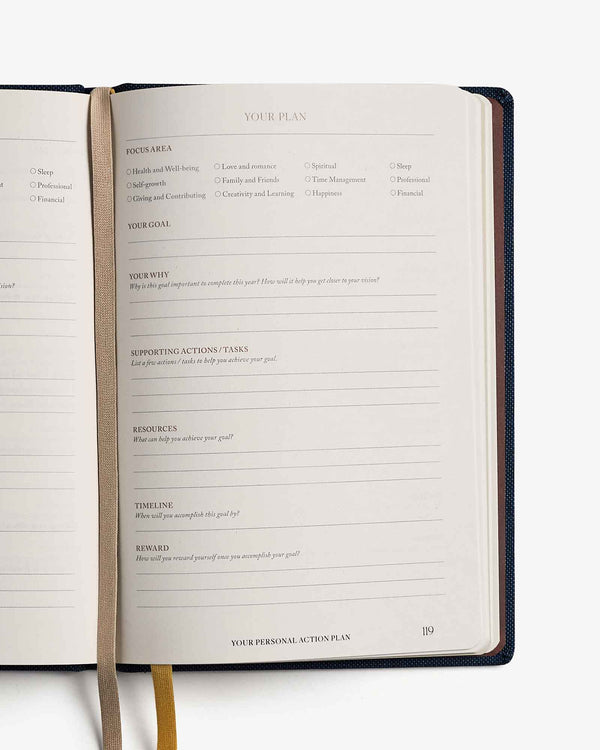 Sleep
Professional
Financial
YOUR PLAN
FOCUS AREA
Health and Well-being
Love and romance
Spiritual
Sleep
Self-growth
Family and Friends
Time Management
Professional
Giving and Contributing
Creativity and Learning
Happiness
Financial
YOUR GOAL
YOUR WHY
Why is this goal important to complete this year? How will it help you get closer to your vision?
SUPPORTING ACTIONS / TASKS
List a few actions / tasks to help you achieve your goal.
RESOURCES
What can help you achieve your goal?
TIMELINE
When will you accomplish this goal by?
REWARD
How will you reward yourself once you accomplish your goal?
YOUR PERSONAL ACTION PLAN
119